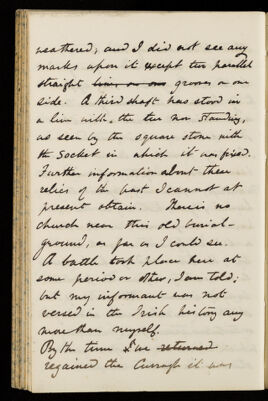 weathered; and I did not see any
marks upon it except two parallel
straight lines, on one grooves on one
side. A third shaft has stood in
a line with the two now standing,
as seen by the square stone with
the socket in which it was fixed.
Further information about these
relics of the past I cannot at
present obtain. There is no
church near this old burial-
ground, as far as I could see.
A battle took place here at
some period or other, I am told;
but my informant was not
versed in the Irish history any
more than myself.
By the time I'we returned
regained the Curragh it was